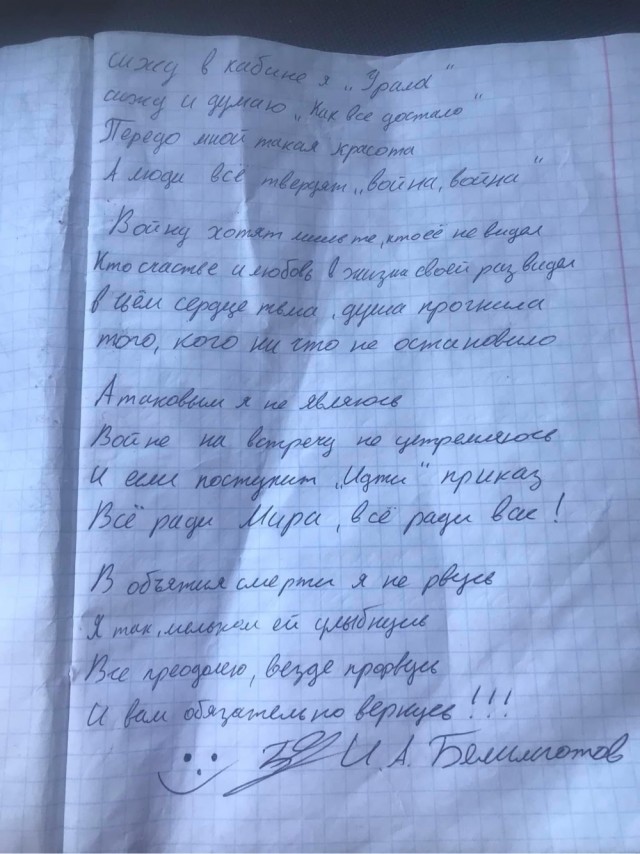 сижу в кабине я „Урала"
сижу и думаю „Как все достало"
Передо мной такая красота
А люди всё твердят „война, война"
Войну хотят лишь те, кто её не видел
Кто счастье и любовь в жизни своей раз видел
В чём сердце тьма, душа прогнила
того, кого ни что не остановило
А таковым я не являюсь
Войне на встречу не устремляюсь
И если поступит „Идти" приказ
Всё ради Мира, всё ради вас!
В объятия смерти я не рвусь
Я так, мельком ей улыбнусь
Все преодолею, везде прорвусь
И вам обязательно вернусь!!!
И. А.